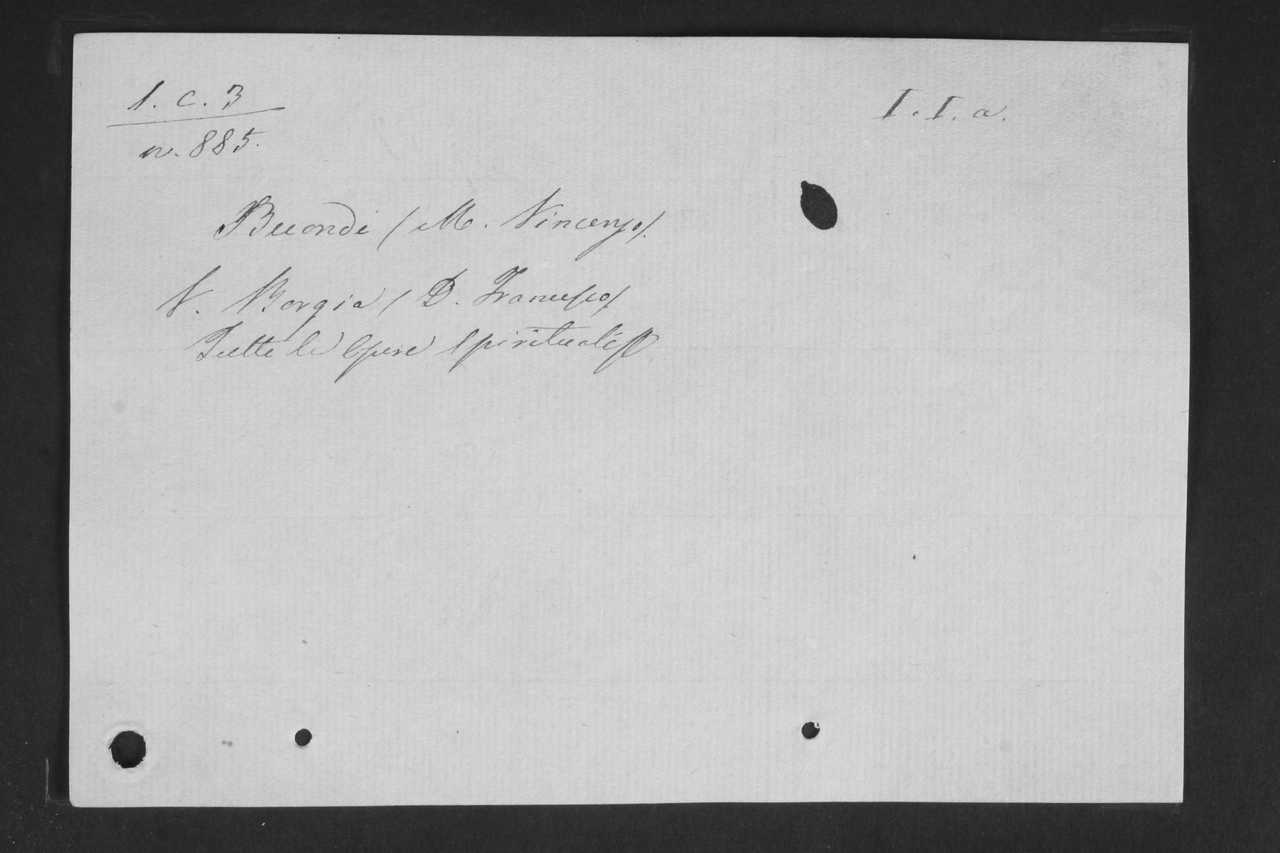 1. C. 3
I. I. a.
n. 885.
Buondi / M. Vincenzo /.
V. Borgia / D. Francesco /
Tutte le Opere Spirituali